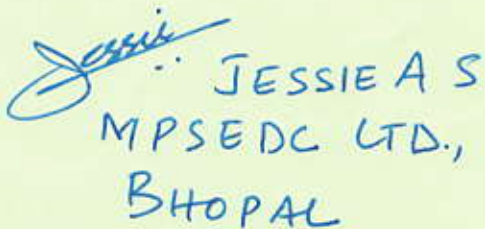 Jessie
JESSIE A S
MPSEDC LTD.,
BHOPAL